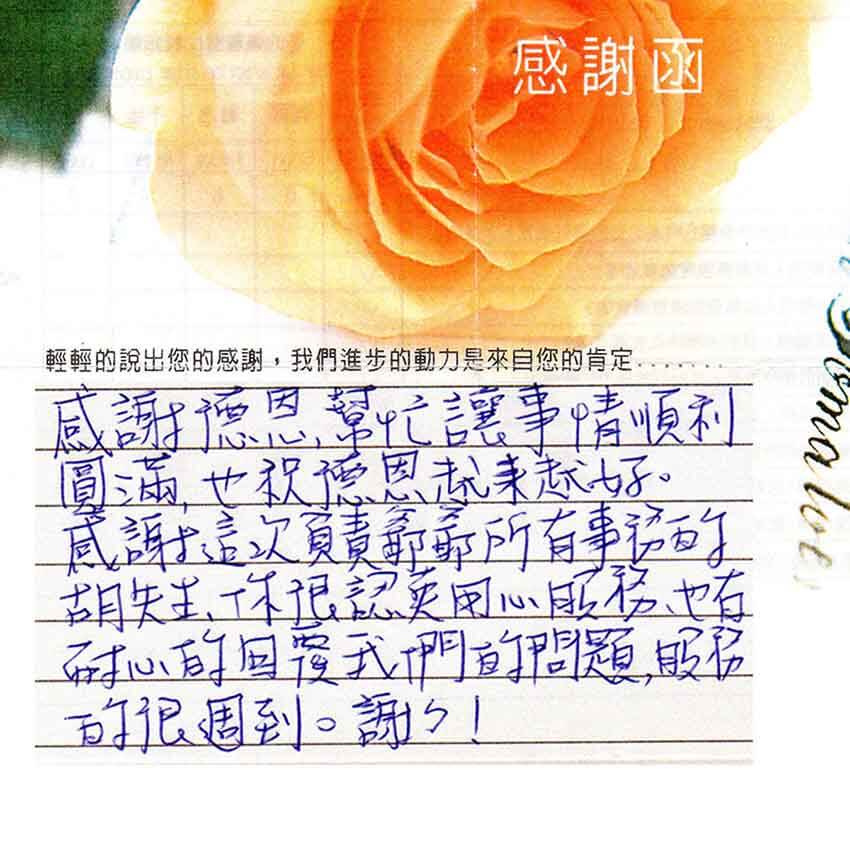 感謝函
輕輕的說出您的感謝，我們進步的動力是來自您的肯定.......
感謝德恩,幫忙讓事情順利
圓滿,也祝德恩越來越好。
感謝這次負責鄭鄭所有事務的
胡先生、你很認真用心服務、也有
耐心的回覆我們的問題,服務
的很週到。謝々!